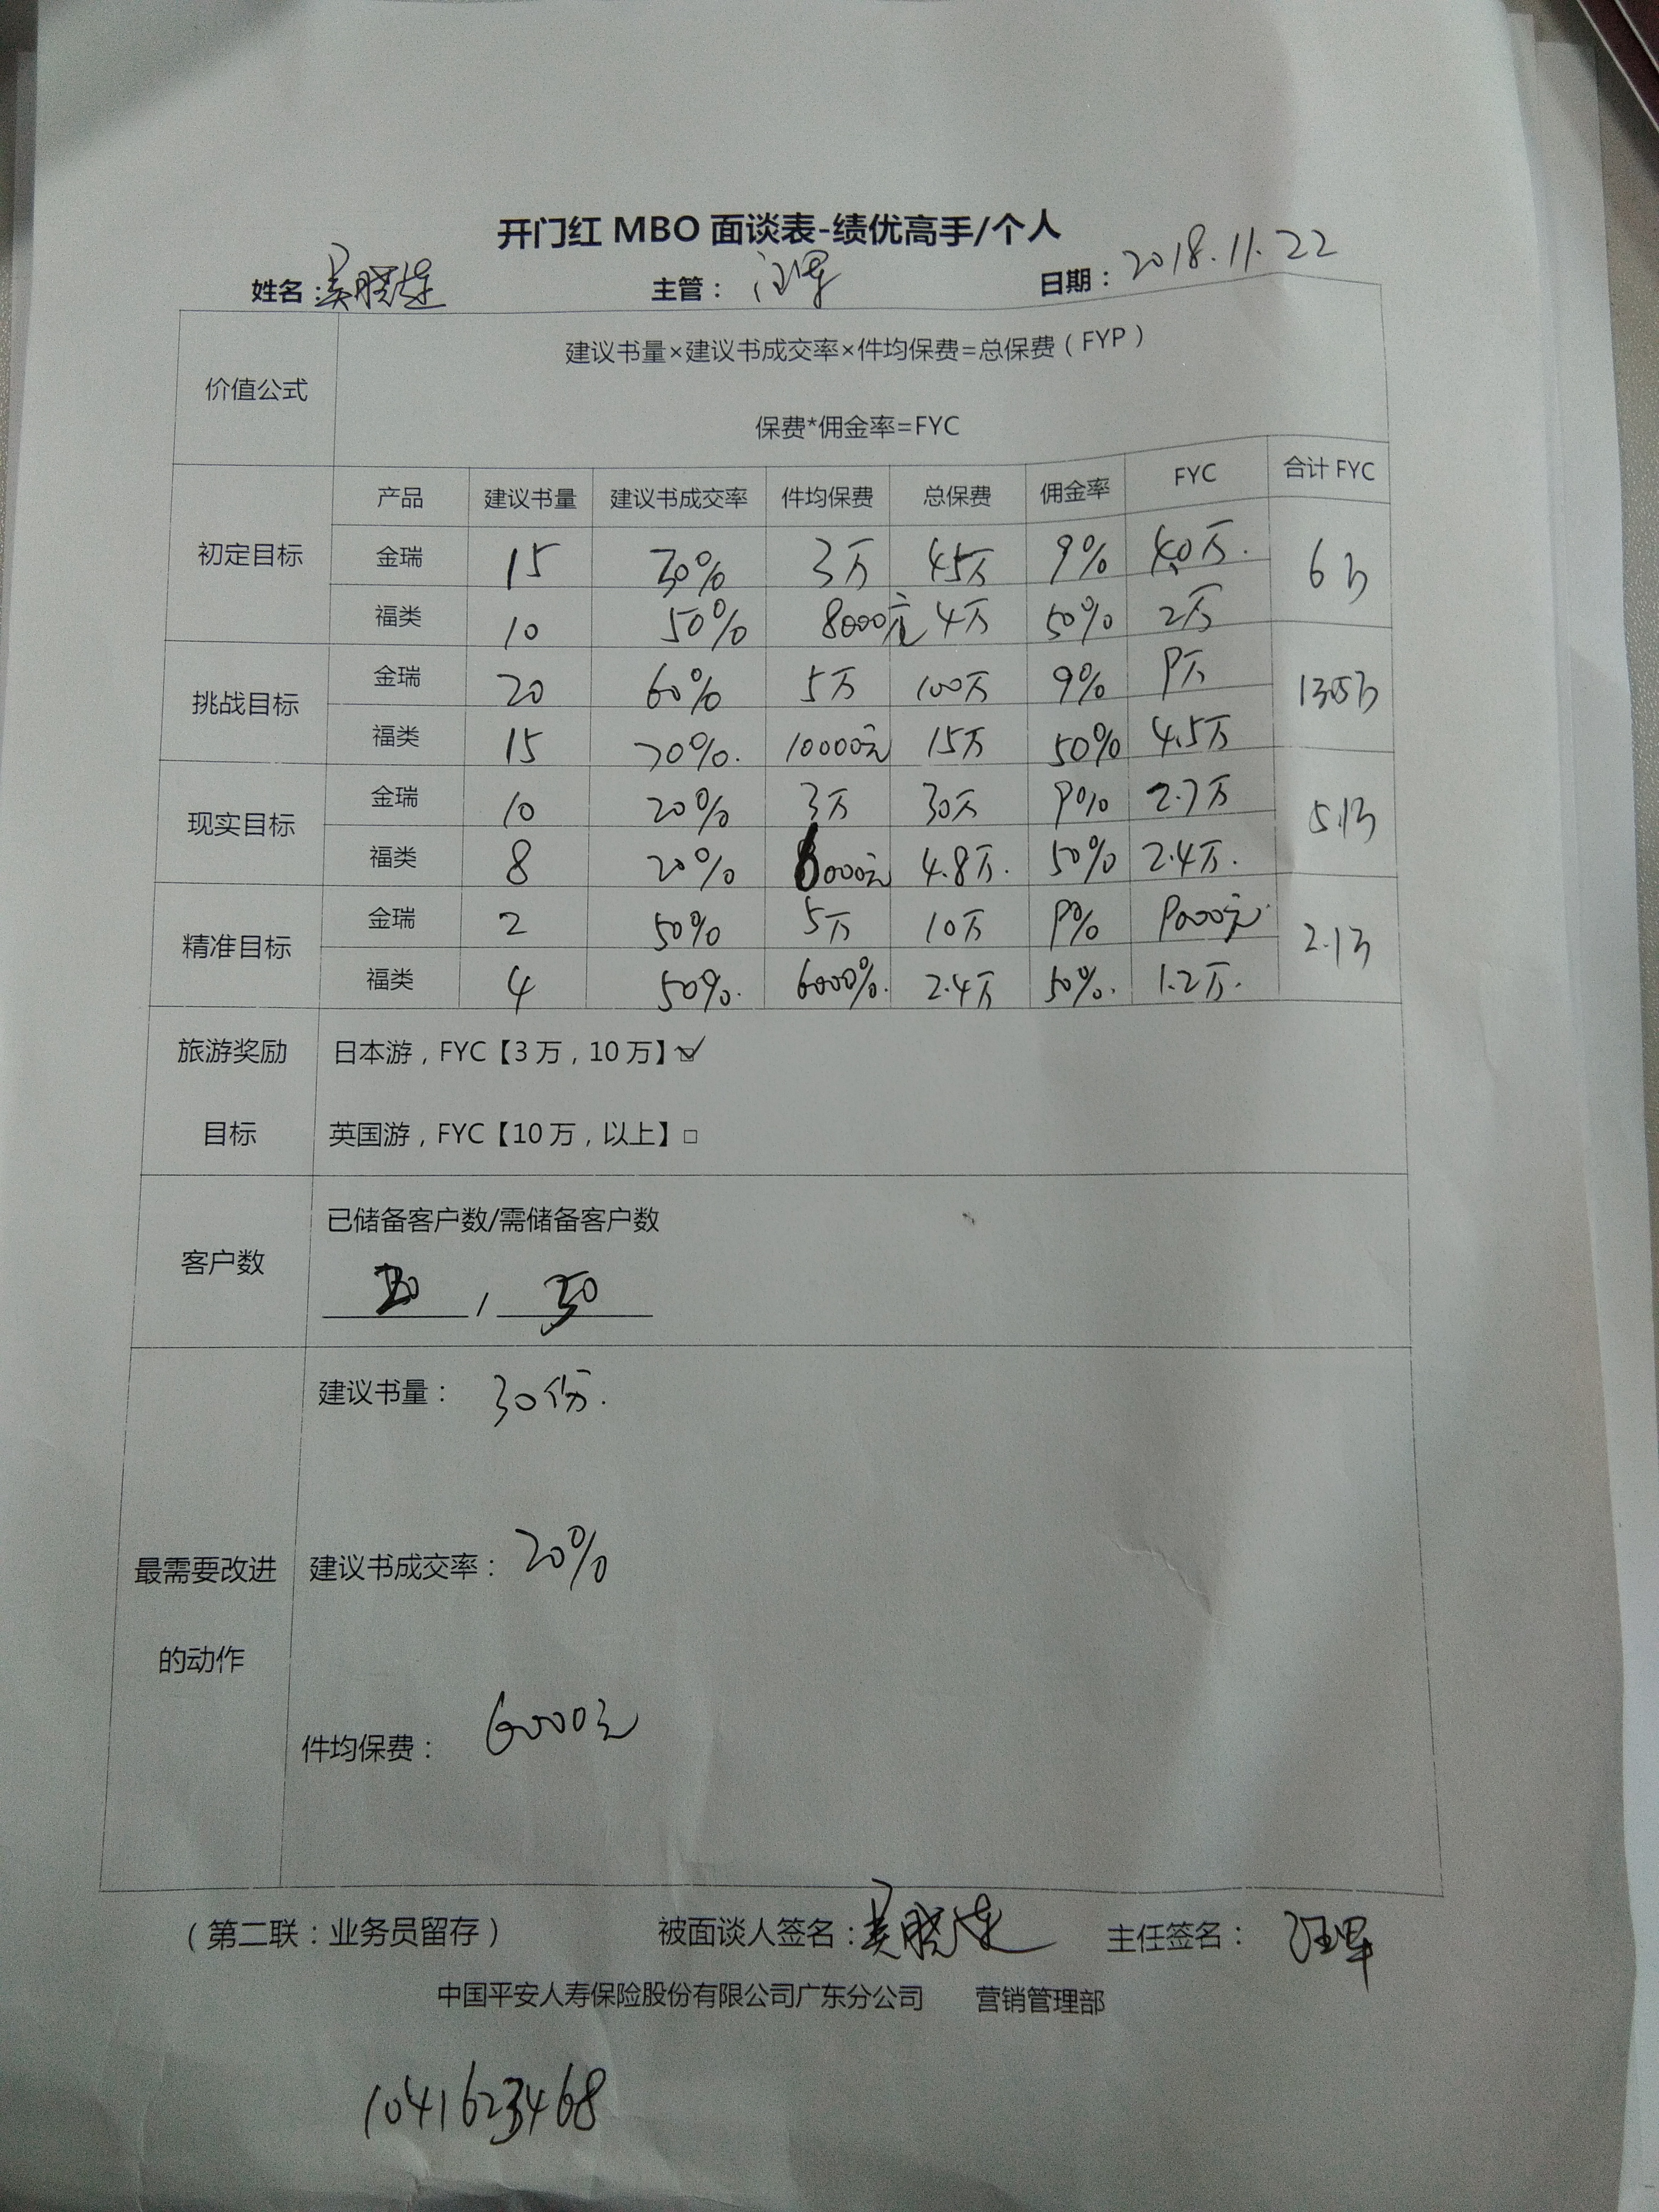 开门红 MBO 面谈表-绩优高手/个人
姓名：吴晓莲 主管： 日期：2018.11.22
价值公式 建议书量×建议书成交率×件均保费=总保费（FYP）
保费*佣金率=FYC
产品 建议书量 建议书成交率 件均保费 总保费 佣金率 FYC 合计 FYC
初定目标 金瑞 15 30% 3万 45万 9% 4.0万. 6万
福类 10 50% 8000元 4万 50% 2万
挑战目标 金瑞 20 60% 5万 100万 9% 9万 13.5万
福类 15 70%. 10000元 15万 50% 4.5万
现实目标 金瑞 10 20% 3万 30万 9% 2.7万 5.1万
福类 8 20% 6000元 4.8万. 50% 2.4万.
精准目标 金瑞 2 50% 5万 10万 9% 9000元 2.1万
福类 4 50%. 6000%. 2.4万 50%. 1.2万.
旅游奖励 日本游，FYC【3 万，10 万】☑
目标 英国游，FYC【10 万，以上】□
客户数 已储备客户数/需储备客户数
/ 50
建议书量： 30份.
最需要改进 建议书成交率： 20%
的动作
件均保费： 6000元
（第二联：业务员留存） 被面谈人签名：吴晓莲 主任签名：
中国平安人寿保险股份有限公司广东分公司 营销管理部
1041623468